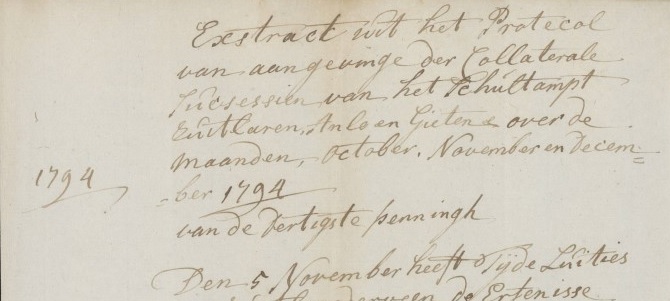 Exstract uit het Protecol
van aangevinge der Collaterale
Sucsessien van het Schultampt
Zuitlaren, Anlo en Gieten over de
maanden, October, November en Decem=
1794
=ber 1794
van de Dertigste penningh
Den 5 November heeft Tijde Luities
de Erfenisse